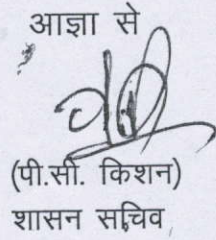 आज्ञा से
(पी.सी. किशन)
शासन सचिव